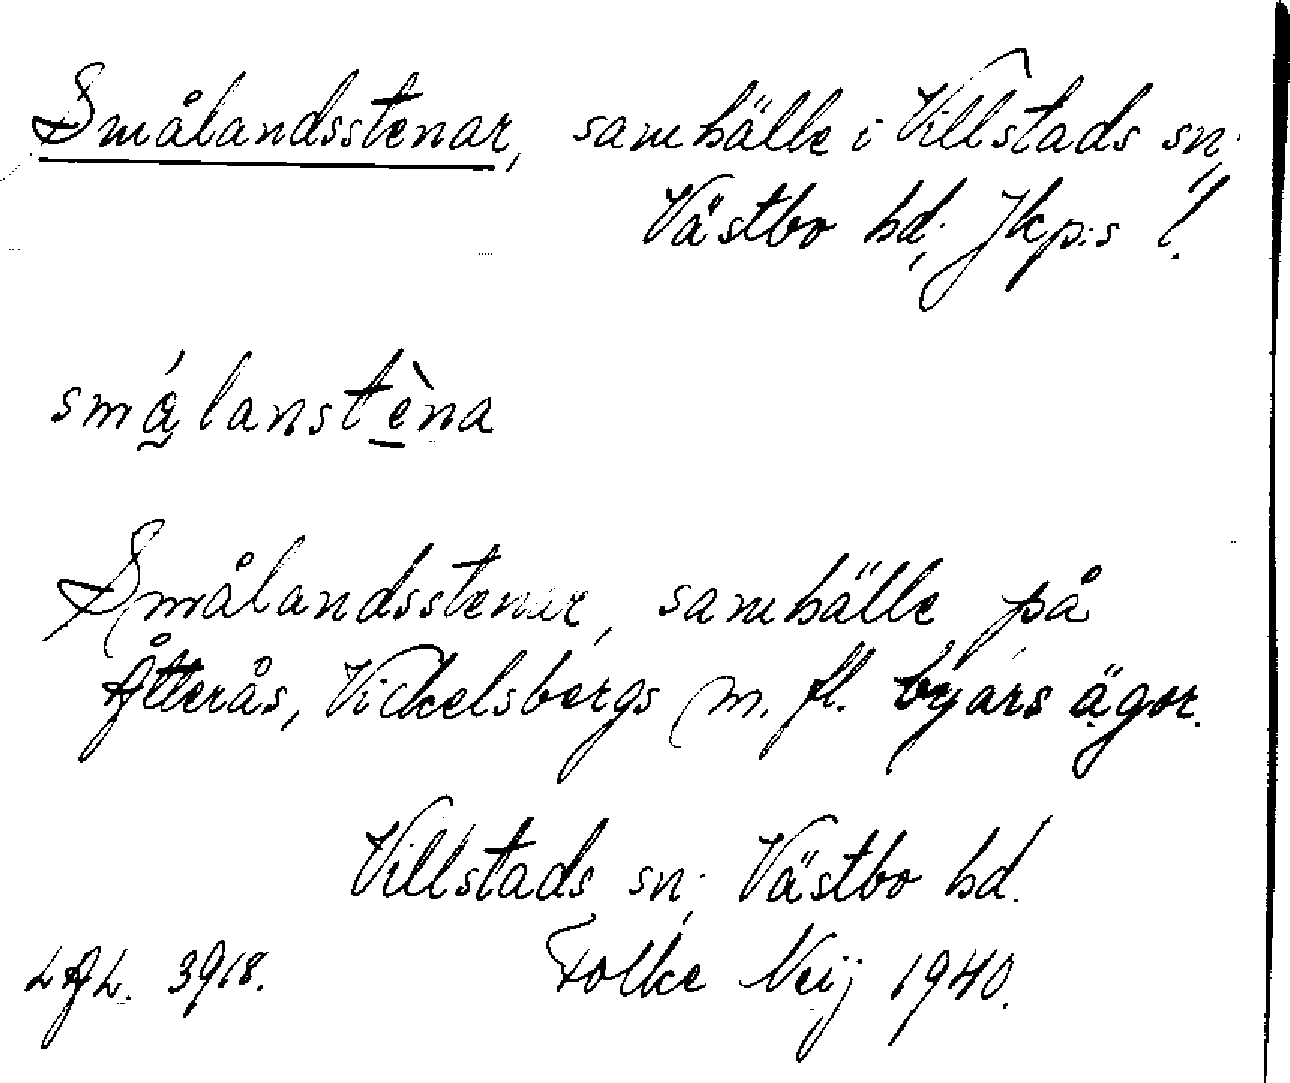 Smålandsstenar, samhälle i Villstads sn;
Västbo hd; Jkp:s l.
småla̱nstèna
Smålandsstenar, samhälle på
Åtterås, Vickelsbergs m. fl. byars ägor.
Villstads sn; Västbo hd.
LAL. 3918. Folke Neij 1940.